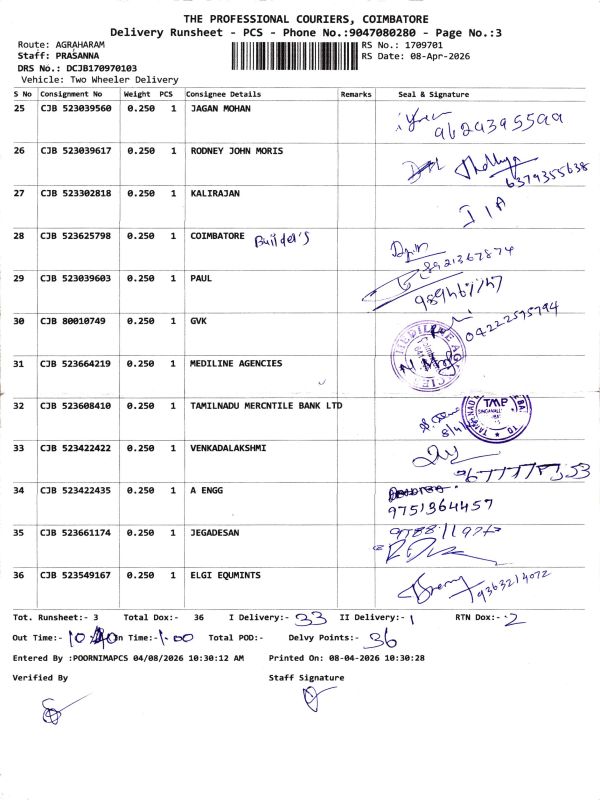 THE PROFESSIONAL COURIERS, COIMBATORE
Delivery Runsheet - PCS - Phone No.:9047080280 - Page No.:3
Route: AGRAHARAM
RS No.: 1709701
Staff: PRASANNA
RS Date: 08-Apr-2026
DRS No.: DCJB170970103
Vehicle: Two Wheeler Delivery
S No Consignment No Weight PCS Consignee Details Remarks Seal & Signature
25 CJB 523039560 0.250 1 JAGAN MOHAN
9629395599
26 CJB 523039617 0.250 1 RODNEY JOHN MORIS
6379355638
27 CJB 523302818 0.250 1 KALIRAJAN
28 CJB 523625798 0.250 1 COIMBATORE Builder's
8921367874
29 CJB 523039603 0.250 1 PAUL
30 CJB 80010749 0.250 1 GVK
04222595794
31 CJB 523664219 0.250 1 MEDILINE AGENCIES
32 CJB 523608410 0.250 1 TAMILNADU MERCNTILE BANK LTD
TMB
33 CJB 523422422 0.250 1 VENKADALAKSHMI
34 CJB 523422435 0.250 1 A ENGG
9751364457
35 CJB 523661174 0.250 1 JEGADESAN
36 CJB 523549167 0.250 1 ELGI EQUMINTS
9363214072
Tot. Runsheet:- 3 Total Dox:- 36 I Delivery:- 33 II Delivery:- 1 RTN Dox:- 2
Out Time:- In Time:- 1.00 Total POD:- Delvy Points:- 36
Entered By :POORNIMAPCS 04/08/2026 10:30:12 AM Printed On: 08-04-2026 10:30:28
Verified By Staff Signature